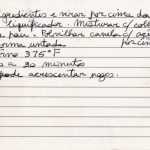 gredientes e virar por cima da
liquificador. Misturar c/colh
pau. Polvilhar canela c/açú
forma untada por cim
rno 375°F
s a 30 minutos
pode acrescentar nozes.